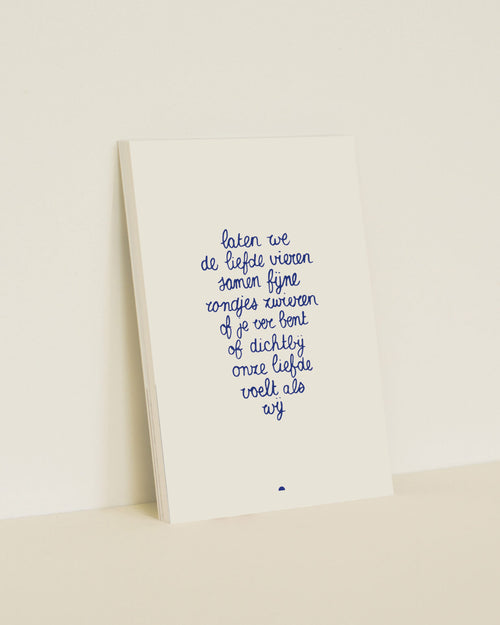 laten we
de liefde vieren
samen fijne
rondjes zwieren
of je ver bent
of dichtbij
onze liefde
voelt als
wij